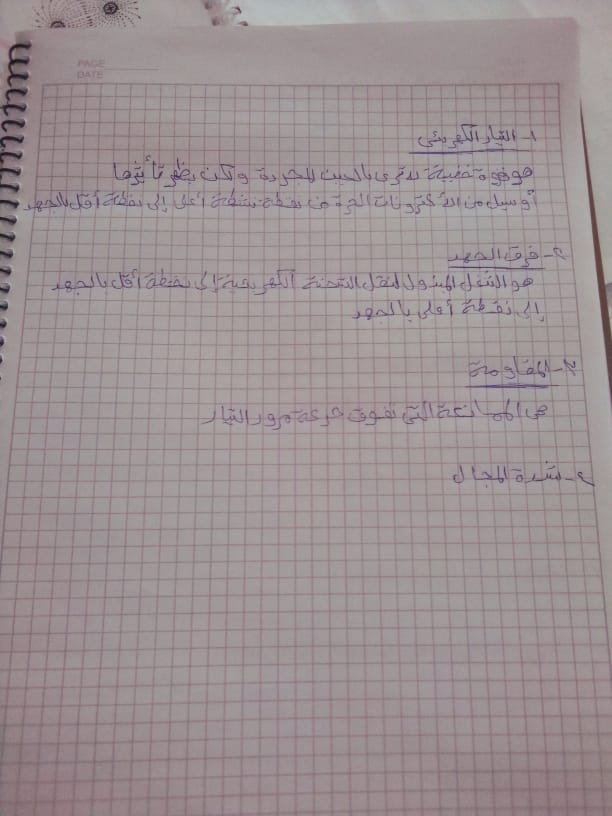 PAGE
DATE
1- التيار الكهربائي
هو قوة خفية لا ترى بالعين المجردة ولكن يظهر تأثيرها
أو سيل من الألكترونات الحرة من نقطة أعلى إلى نقطة أقل بالجهد
2- فرق الجهد
هو الشغل المبذول لنقل الشحنة الكهربية إلى نقطة أقل بالجهد
إلى نقطة أعلى بالجهد
3- المقاومة
هي الممانعة التي تعوق حركة مرور التيار
4- شدة المجال